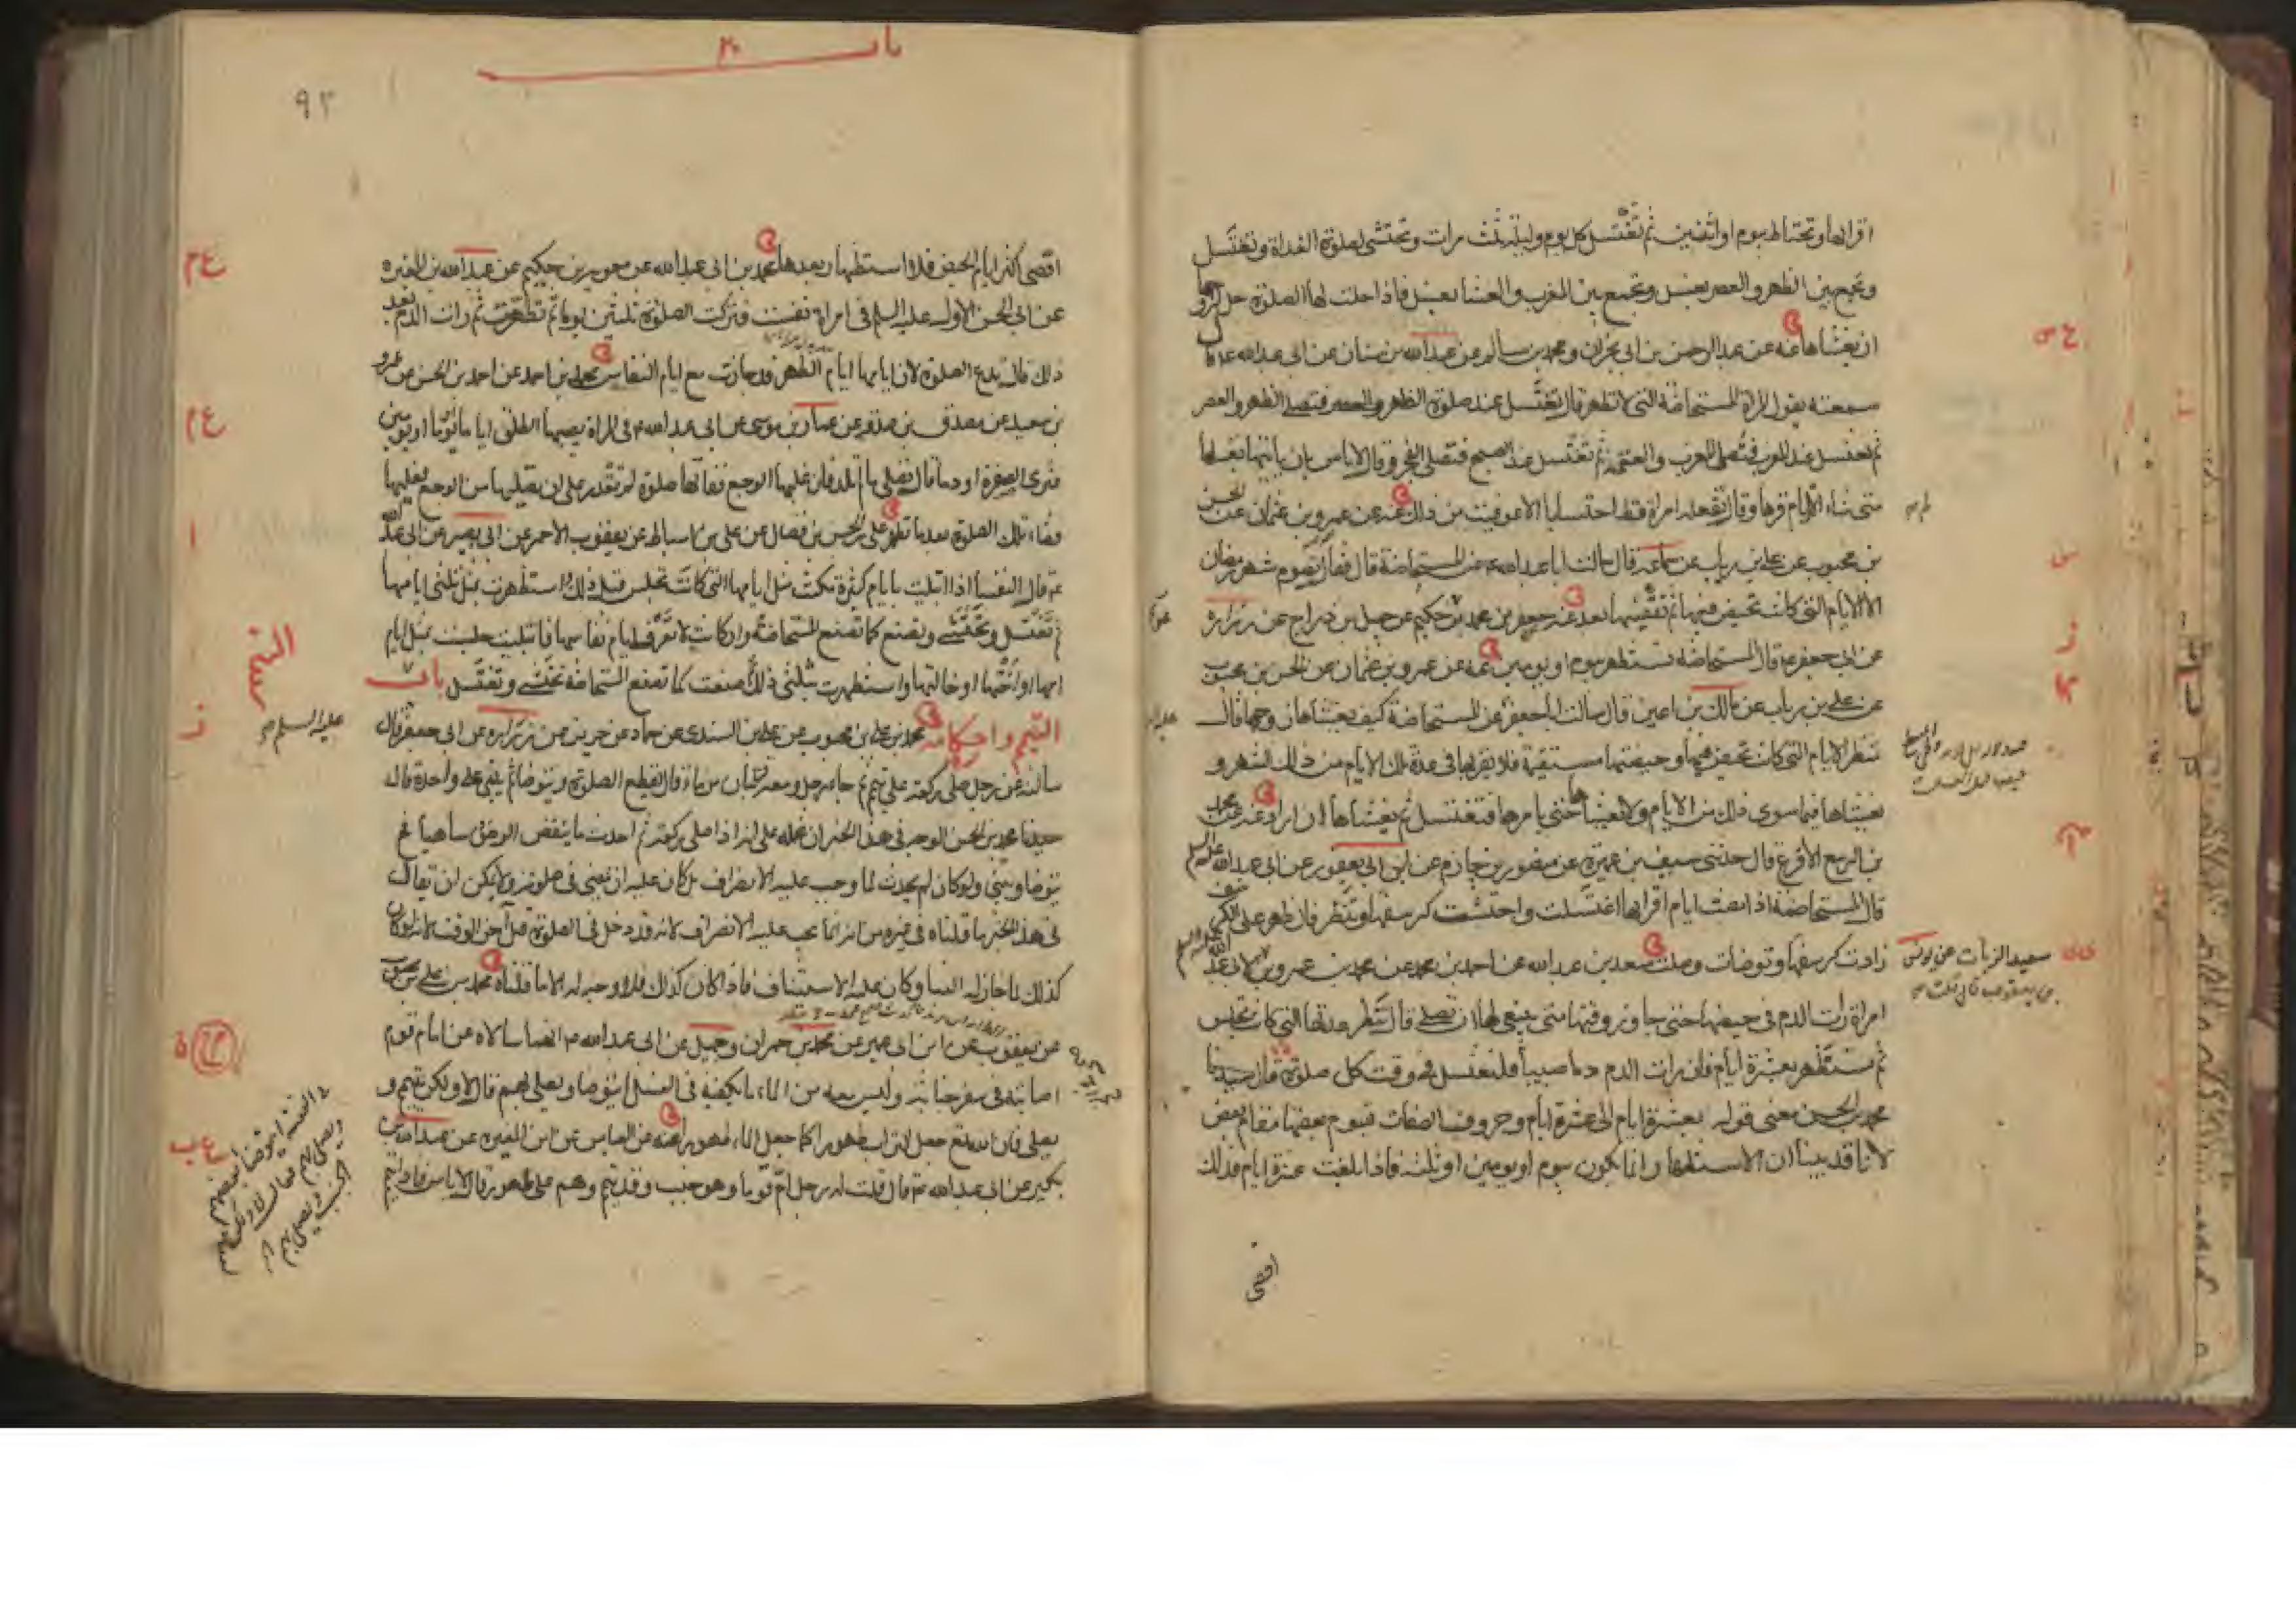 اقرائها وتحتاط بيوم او اثنين ثم تغتسل كل يوم وليلة ثلث مرات وتحتشى لصلوة الغداة وتغتسل
وتجمع بين الظهر والعصر بغسل وتجمع بين المغرب والعشا بغسل فاذا حلت لها الصلوة حل لزوجها
ان يغشاها عنه عن عبد الرحمن بن ابى نجران ومحمد بن سالم عن عبد الله بن سنان عن ابى عبد الله ع قال
سمعته يقول المراة المستحاضة التى لا تطهر قال تغتسل عند صلوة الظهر فتصلى الظهر والعصر
ثم تغتسل عند المغرب فتصلى المغرب والعتمة ثم تغتسل عند الصبح فتصلى الفجر وقال لا باس بان ياتيها بعلها
متى شاء الا ايام قرئها وقال لم تفعله امراة قط احتسابا الا عوفيت من ذلك عنه عن عمرو بن عثمان عن الحسن
بن محبوب عن على بن رباب عن سماعة قال سالت ابا عبد الله ع عن المستحاضة قال فقال تصوم شهر رمضان
الا الايام التى كانت تحيض فيها ثم تقضيها بعد عنه جعفر بن محمد بن حكيم عن جميل بن دراج عن زرارة
عن ابى جعفر ع قال المستحاضة تستظهر بيوم او يومين عنه عن عمرو بن عثمان عن الحسن بن محبوب
عن على بن رباب عن مالك بن اعين قال سالت ابا جعفر عن المستحاضة كيف يغشاها زوجها قال
تنظر الايام التى كانت تحيض فيها وحيضتها مستقيمة فلا يقربها فى عدة تلك الايام من ذلك الشهر و
يغشاها فيما سوى ذلك من الايام ولا يغشاها حتى يامرها فتغتسل ثم يغشاها ان اراد عنه عن محمد
بن الربيع الاقرع قال حدثنى سيف بن عميرة عن منصور بن حازم عن ابن ابى يعفور عن ابى عبد الله عليه السلم
قال المستحاضة اذا مضت ايام اقرائها اغتسلت واحتشت كرسفها وتنظر فان ظهر على الكرسف
زادت كرسفها وتوضات وصلت سعد بن عبد الله عن احمد بن محمد عن محمد بن عمرو بن
سعيد الزيات عن يونس
بن يعقوب قال قلت
امراة رات الدم فى حيضها حتى جاوز وقتها متى ينبغى لها ان تصلى قال تنظر عدتها التى كانت تجلس
ثم تستظهر بعشرة ايام فان رات الدم دما صبيبا فلتغتسل فى وقت كل صلوة قال حيدنا
محمد بن الحسن معنى قوله بعشرة ايام الى عشرة ايام وحروف الصفات تقوم بعضها مقام بعض
لانا قد بينا ان الاستظهار انما يكون بيوم او يومين او ثلثة فاذا بلغت عشرة ايام فذلك
اقصى
باب ٢٠
٩٢
اقصى اكثر ايام الحيض فلا استظهار بعدها محمد بن ابى عبد الله عن معوية بن حكيم عن عبد الله بن المغيرة
عن ابى الحسن الاول عليه السلم فى امراة نفست فتركت الصلوة ثلثين يوما ثم تطهرت ثم رات الدم بعد
ذلك قال تدع الصلوة لان ايامها ايام الطهر قد جازت مع ايام النفاس محمد بن احمد عن احمد بن الحسن عن عمرو
بن سعيد عن مصدق بن صدقة عن عمار بن موسى عن ابى عبد الله ع فى المراة يصيبها الطلق اياما او يوما او يومين
فترى الصفرة او دما قال تصلى ما لم تلد فان غلبها الوجع ففاتها صلوة لم تقدر على ان تصليها من الوجع فعليها
قضاء تلك الصلوة بعد ما تطهر على بن الحسن بن فضال عن على بن اسباط عن يعقوب الاحمر عن ابى بصير عن ابى عبد الله
ع قال النفسا اذا ابتليت بايام كثيرة مكثت مثل ايامها التى كانت تجلس قبل ذلك واستظهرت بمثل ثلثى ايامها
ثم تغتسل وتحتشى وتصنع كما تصنع المستحاضة وان كانت لا تعرف ايام نفاسها فابتليت جلست بمثل ايام
امها او اختها او خالتها واستظهرت بثلثى ذلك ثم صنعت كما تصنع المستحاضة تحتشى وتغتسل باب
التيمم
التيمم واحكامه محمد بن على بن محبوب عن على بن السندى عن حماد عن حريز عن زرارة عن ابى جعفر قال
عليه السلم
سالته عن رجل صلى ركعة على تيمم ثم جاء رجل ومعه قربتان من ماء قال يقطع الصلوة ويتوضا ثم يبنى على واحدة قال
حيدنا محمد بن الحسن الوجه فى هذا الخبر ان نحمله على انه اذا صلى ركعة ثم احدث ما ينقض الوضوء ساهيا
يتوضا ويبنى ولو كان لم يحدث لما وجب عليه الانصراف بل كان عليه ان يمضى فى صلوته ولا يمكن ان يقال
فى هذا الخبر ما قلناه فى غيره من انه انما يجب عليه الانصراف لانه قد دخل فى الصلوة قبل آخر الوقت لانه لو كان
كذلك لما جاز له البنا وكان عليه الاستيناف فاذا كان كذلك فلا وجه له الا ما قلناه محمد بن على بن محبوب
عن يعقوب عن ابن ابى عمير عن محمد بن حمران وجميل عن ابى عبد الله ع انهما سالاه عن امام قوم
اصابته فى سفر جنابة وليس معه من الماء ما يكفيه فى الغسل ايتوضا ويصلى بهم قال لا ولكن يتيمم و
يصلى فان الله تع جعل التراب طهورا كما جعل الماء طهورا عنه عن العباس عن ابن المغيرة عن عبد الله بن
بكير عن ابى عبد الله ع قال قلت له رجل ام قوما وهو جنب وقد تيمم وهم على طهور قال لا باس فاذا تيمم